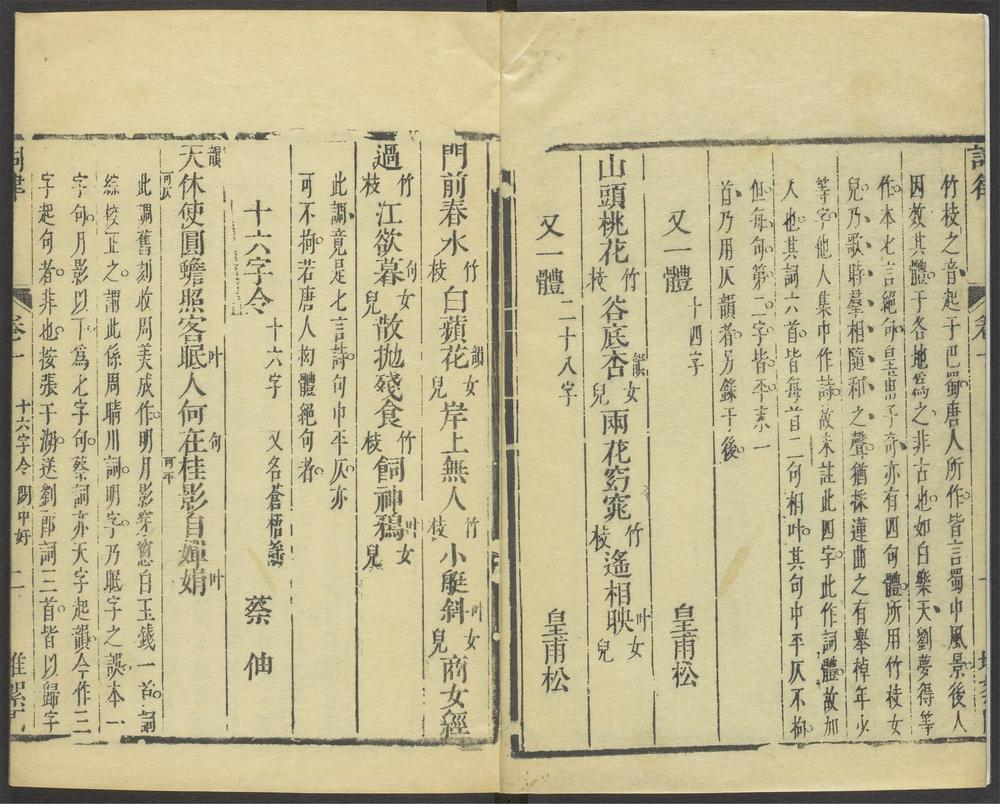 竹枝之音起于巴蜀唐人所作皆言蜀中風景後人
因效其體于各地爲之非古也如白樂天劉夢得等
作本七言絶句皇甫子奇亦有四句體所用竹枝女
兒乃歌時羣相隨和之聲猶採蓮曲之有舉棹年少
等字他人集中作詩故未註此四字此作詞體故加
入也其詞六首皆每首二句相叶其句中平仄不拘
但每句第二字皆平素一
首乃用仄韻者另錄于後
又一體 十四字 皇甫松
山頭桃花竹枝谷底杏韻女兒雨花窈窕竹枝遙相映叶女兒
又一體 二十八字 皇甫松
門前春水竹枝白蘋花韻女兒岸上無人竹枝小艇斜叶女兒商女經
過竹枝江欲暮句女兒散抛殘食竹枝飼神鴉叶女兒
此調竟是七言詩句中平仄亦
可不拘若唐人拗體絶句者
十六字令 十六字 又名蒼梧謠 蔡伸
天韻可仄休使圓蟾照客眠叶人何在句桂可平影自嬋娟叶
此調舊刻收周美成作明月影穿窻白玉錢一首詞
綜校正之謂此係周晴川詞明字乃眠字之誤本一
字句月影以下爲七字句蔡詞亦天字起韻今作三
字起句者非也按張于湖送劉郎詞三首皆以歸字
詞律 卷一 十六字令 閑中好 二